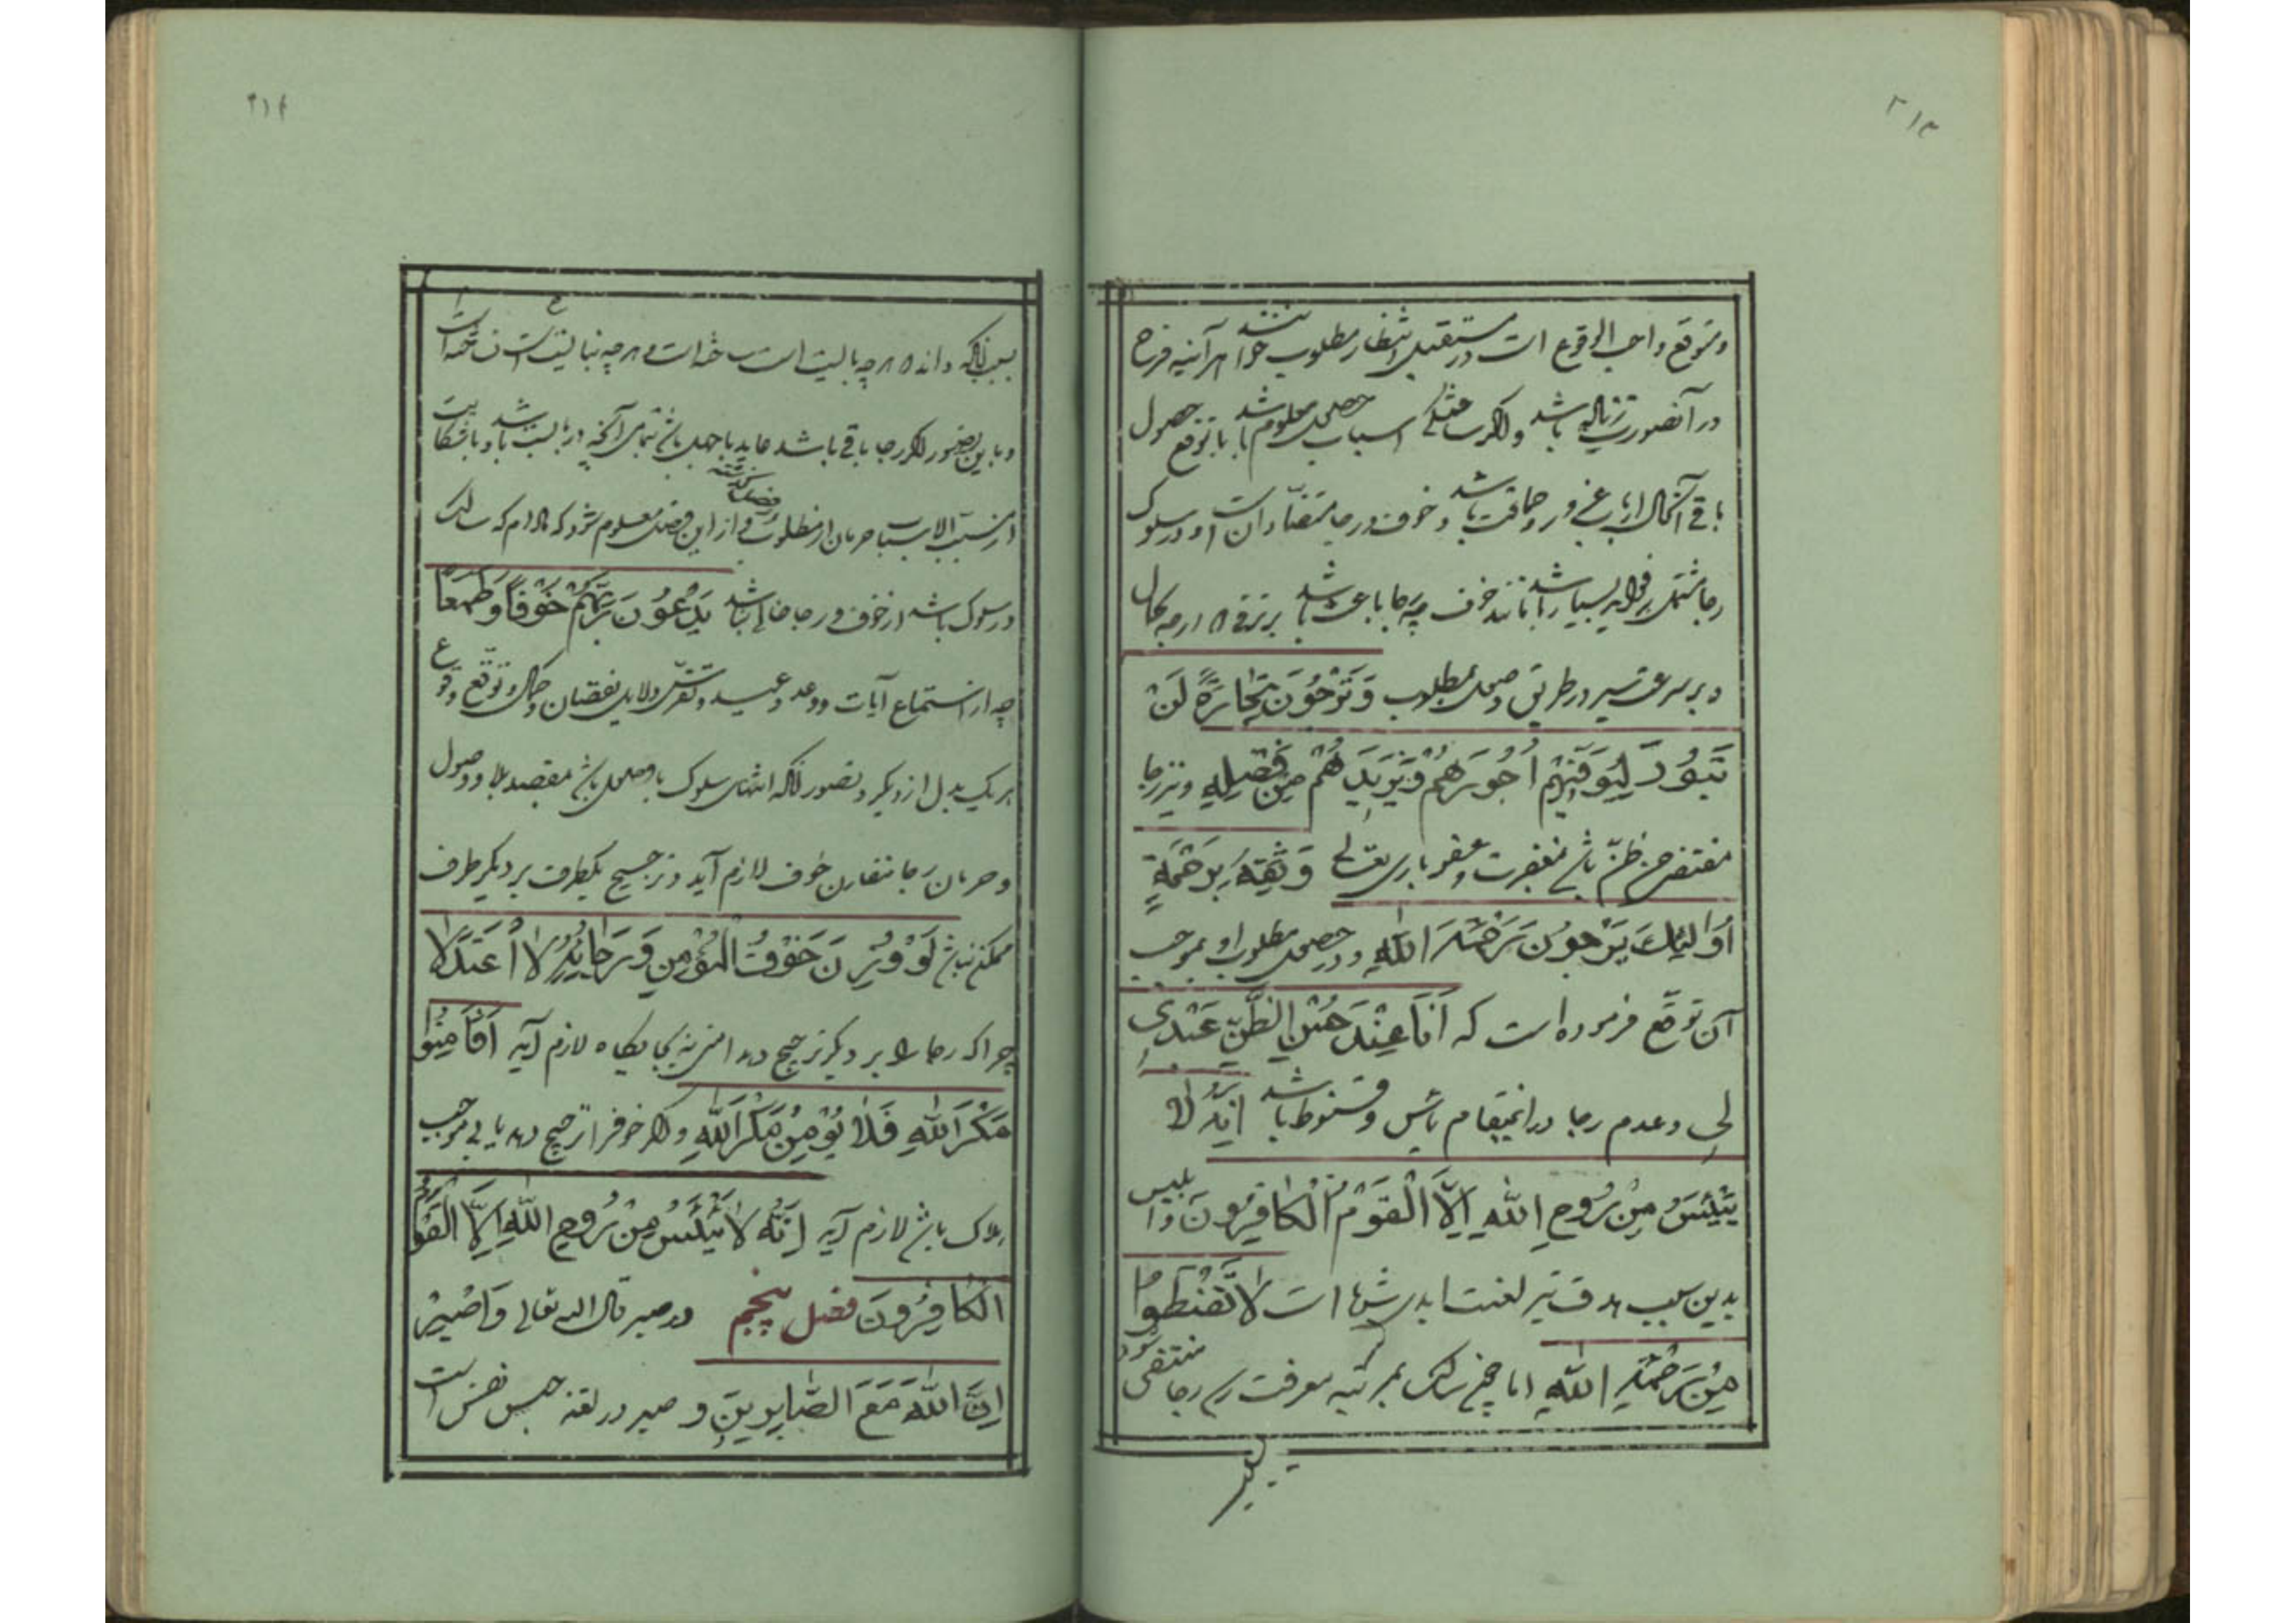 ۳۱۳
و متوقع واجب الوقوع است در مستقبل انتظار مطلوب خوانند هر آینه فرح
در آنصورت زیاده باشد و اگر حصول اسباب معلوم باشد با توقع حصول
باقی آنحال از باب غرور و حماقت باشد و خوف و رجا متضاد است و در سلوک
رجا مشتمل بر فواید بسیار باشد مانند خوف چه رجا باعث باشد بر ترقی در درجه کمال
و بر سرعت سیر در طریق وصول مطلوب وَ تَرْجُونَ تِجَارَةً لَنْ
تَبُورَ لِيُوَفِّيَهُمْ أُجُورَهُمْ وَيَزِيدَهُمْ مِنْ فَضْلِهِ و نیز رجا
مقتضی حسن ظن باشد بمغفرت و عفو باری تعالی وَ ثِقَةً بِرَحْمَةٍ
أُولٰئِكَ يَرْجُونَ رَحْمَةَ اللهِ و در حصول مطلوب او بموجب
آن توقع فرموده است که اَنَا عِنْدَ حُسْنِ الظَّنِّ عَبْدِي
بِي و عدم رجا در اینمقام یأس و قنوط باشد اِنَّهُ لَا
يَيْئَسُ مِنْ رُوحِ اللهِ اِلَّا الْقَوْمُ الْكَافِرُونَ و ابلیس
بدین سبب هدف تیر لعنت ابدی شده است لَا تَقْنَطُوا
مِنْ رَحْمَةِ اللهِ اما چون سالک بمرتبه معرفت رسد رجا منتفی شود
۳۱۴
بسبب آنکه داند هر چه بایست است ساخته است و هر چه نبایست است نساخته است
و باین تصور اگر رجا باقی باشد عاید با جهل باشد بتمامی آنچه دربایست باشد و با شکایت
از مسبب الاسباب حرمان از مطلوب و از این فصل و فصل گذشته معلوم شود که مادام که سالک
در سلوک باشد از خوف و رجا خالی نباشد يَدْعُونَ رَبَّهُمْ خَوْفًا وَطَمَعًا
چه از استماع آیات وعد و وعید و تفرس دلایل نقصان و کمال و توقع وقوع
هر یک بدل از دیگر و تصور آنکه انتهای سلوک با وصول باشد بمقصد یا وصول
و حرمان رجا مقارن خوف لازم آید و ترجیح یکطرف بر دیگر طرف
ممکن نباشد لَوْ وُزِنَ خَوْفُ الْمُؤْمِنِ وَ رَجَائُهُ لَاعْتَدَلَا
چرا که رجا را بر دیگر ترجیح دهد امنی نه بجایگاه لازم آید اَفَأَمِنُوا
مَكْرَ اللهِ فَلَا يُؤْمِنُ مَكْرَ اللهِ و اگر خوف را ترجیح دهد یأس موجب
هلاک باشد لازم آید اِنَّهُ لَا يَيْئَسُ مِنْ رُوحِ اللهِ اِلَّا الْقَوْمُ
الْكَافِرُونَ فصل پنجم در صبر قال الله تعالی وَاصْبِرْ
اِنَّ اللهَ مَعَ الصَّابِرِينَ و صبر در لغة حبس نفس است